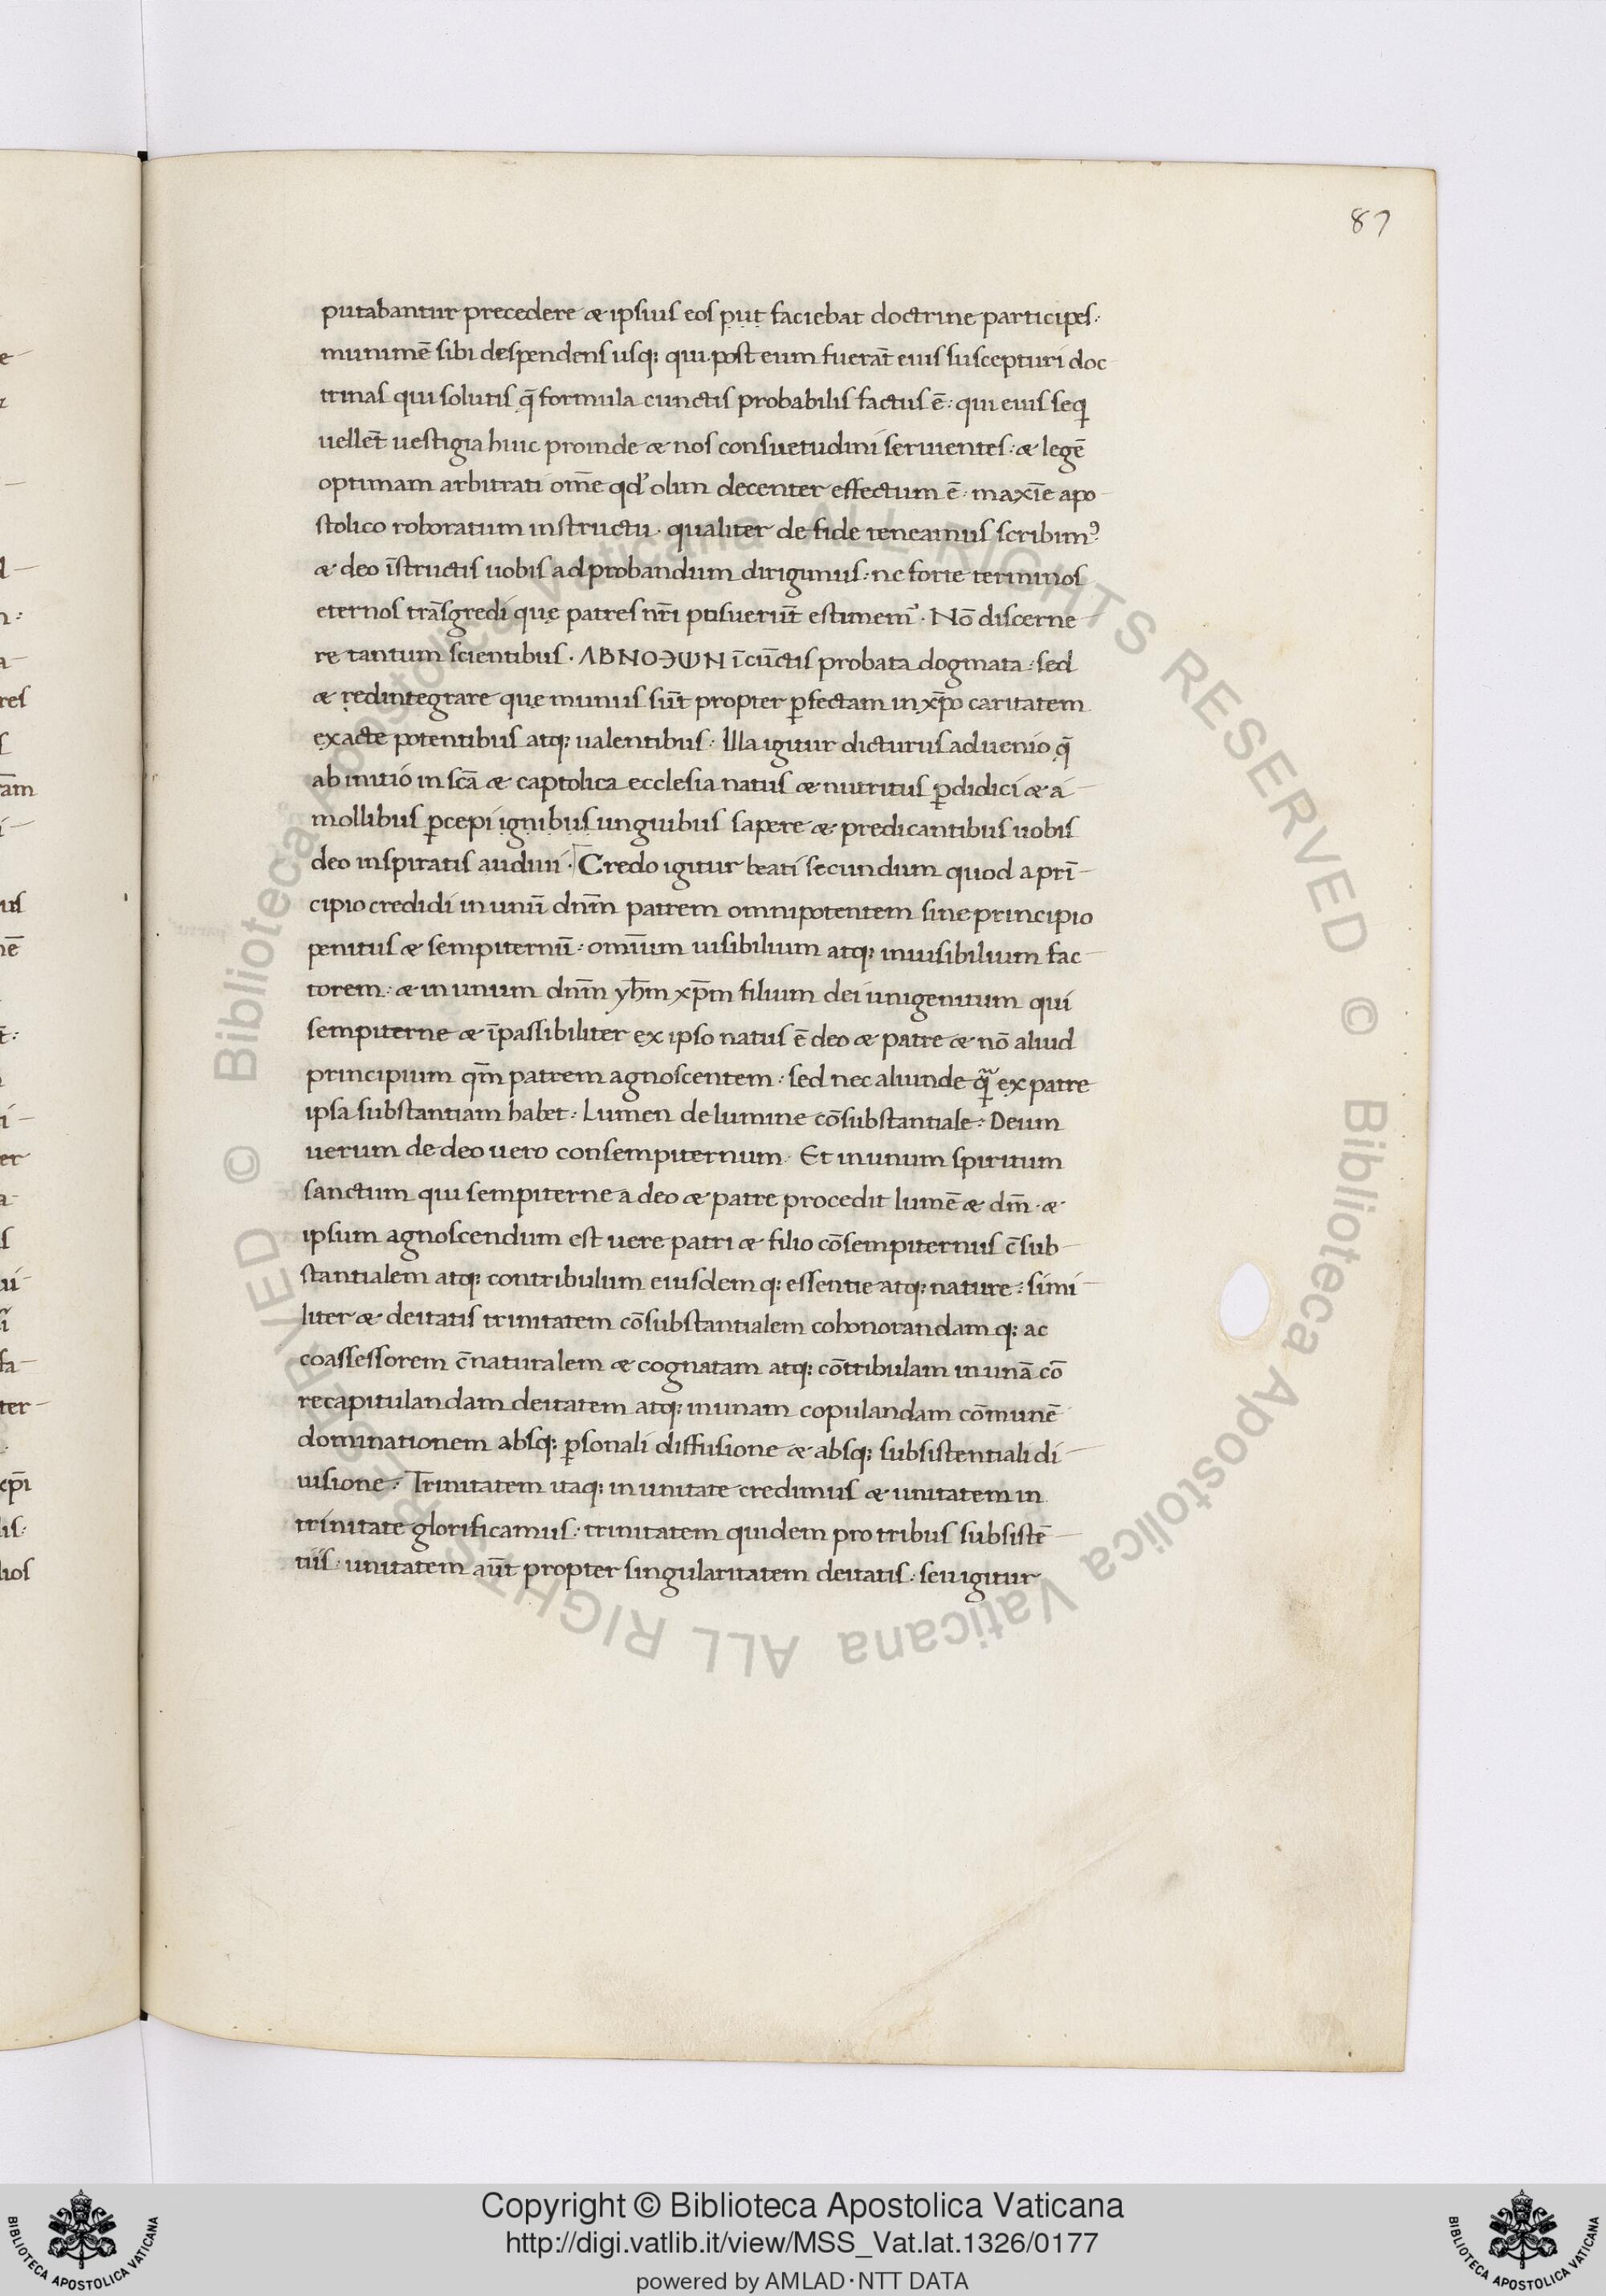 87
putabantur precedere & ipsius eos put faciebat doctrine participes:
munimē sibi despendens usq; qui post eum fuerāt eius suscepturi doc
trinas qui solutis q̄ formula cunctis probabilis factus ē: qui eius seq
uellēt uestigia huic proinde & nos consuetudini seruientes: & legē
optimam arbitrati om̄e qd' olim decenter effectum ē: maxīe apo
stolico roboratum instructu. qualiter de fide teneamus scribimꝰ
& deo īstructis uobis ad probandum dirigimus: ne forte terminos
eternos trāsgredi que patres nr̄i posuerūt estimem'. Nō discerne
re tantum scientibus. ΛΒΝΟϿѠΝ ī cūctis probata dogmata: sed
& redintegrare que munus sūt propter ꝑfectam in xp̄o caritatem
exacte potentibus atq; ualentibus: Illa igitur dicturus aduenio q̄
ab initio in scā & captolica ecclesia natus & nutritus ꝑdidici & a
mollibus ꝑcepi ignibus unguibus sapere & predicantibus uobis
deo inspiratis audiui. Credo igitur beati secundum quod a prī
cipio credidi in unū dn̄m patrem omnipotentem sine principio
penitus & sempiternū: omīum uisibilium atq; inuisibilium fac
torem: & in unum dn̄m yh̄m xp̄m filium dei unigenitum qui
sempiterne & īpassibiliter ex ipso natus ē deo & patre & nō aliud
principium qm̄ patrem agnoscentem: sed nec aliunde q ex patre
ipsa substantiam habet: Lumen de lumine cōsubstantiale: Deum
uerum de deo uero consempiternum. Et in unum spiritum
sanctum qui sempiterne a deo & patre procedit lumē & dm̄. &
ipsum agnoscendum est uere patri & filio cōsempiternus c̄sub
stantialem atq; contribulum eiusdem q; essentie atq; nature: simi
liter & deitatis trinitatem cōsubstantialem cohonorandam q; ac
coassessorem c̄naturalem & cognatam atq; cōtribulam in unā cō
recapitulandam deitatem atq; in unam copulandam cōmunē
dominationem absq; ꝑsonali diffusione & absq; subsistentiali di
uisione: Trinitatem itaq; in unitate credimus & unitatem in
trinitate glorificamus: trinitatem quidem pro tribus subsistē
tiis: unitatem aūt propter singularitatem deitatis: seu igitur
© Biblioteca Apostolica Vaticana ALL RIGHTS RESERVED © Biblioteca Apostolica Vaticana ALL RIGHTS RESERVED
Copyright © Biblioteca Apostolica Vaticana
http://digi.vatlib.it/view/MSS_Vat.lat.1326/0177
powered by AMLAD·NTT DATA
BIBLIOTECA APOSTOLICA VATICANA
BIBLIOTECA APOSTOLICA VATICANA